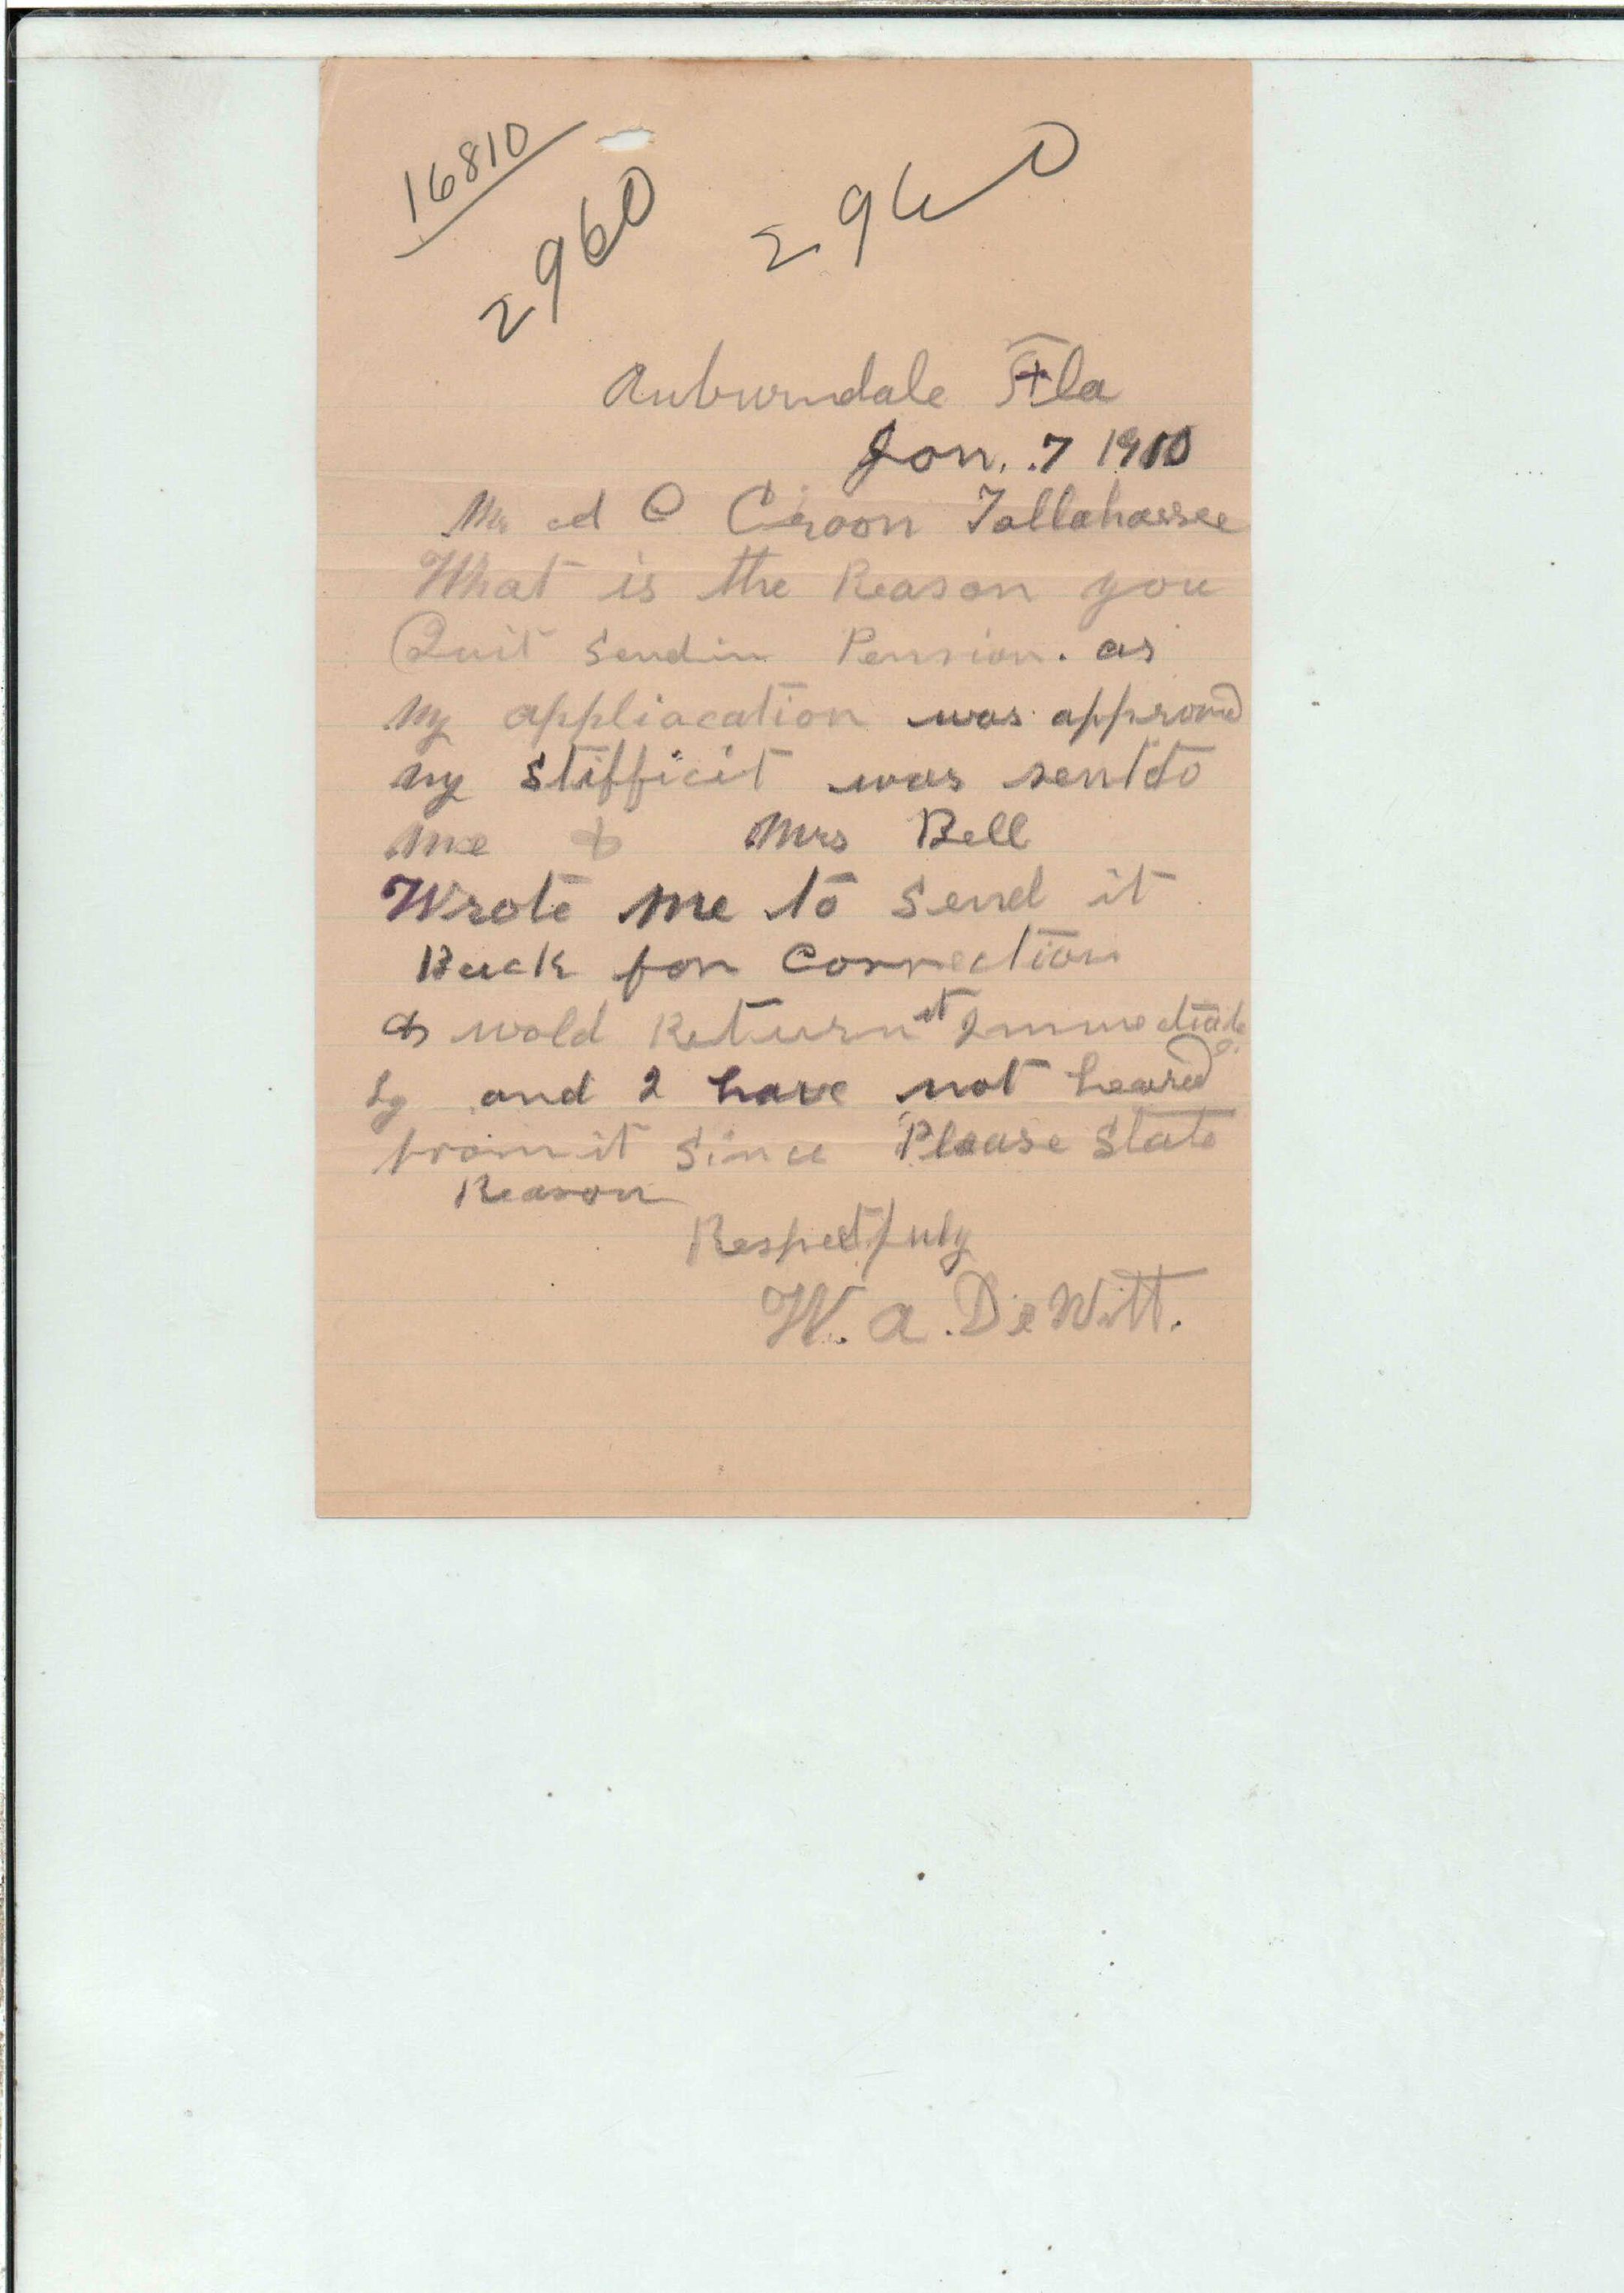 16810
2960 2960
Auburndale Fla
Jan. 7 1910
Mr ad C Croon Tallahassee
What is the Reason you
Quit Sendin Pension. as
my appliacation was approvd
my Stifficit was sent to
me & Mrs Bell
Wrote me to Send it
Back for Correction
& wold Return it Immediate
ly and I have not heared
from it Since Please State
Reason
Respectfuly
W. A. DeWitt.